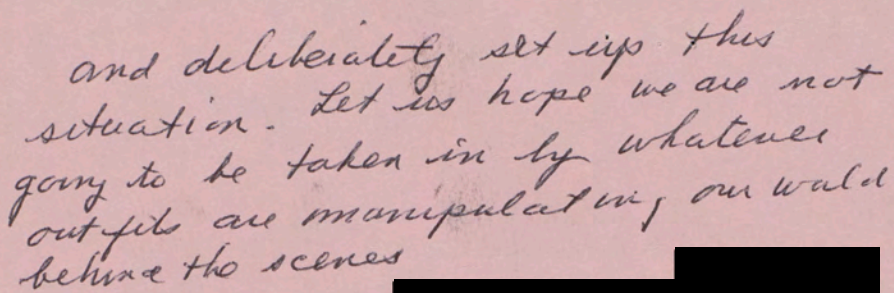 and deliberately set up this
situation. Let us hope we are not
going to be taken in by whatever
outfits are manipulating our world
behind the scenes